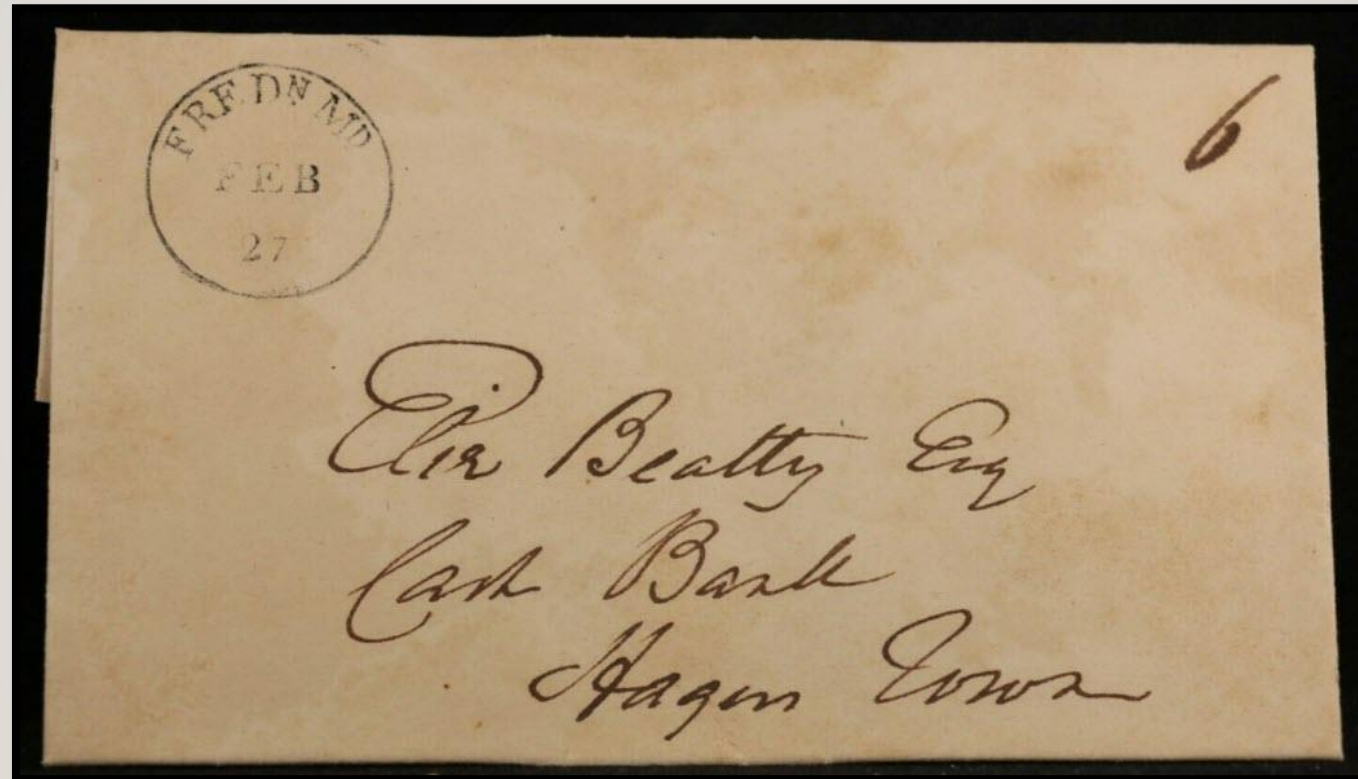 FREDN MD
FEB
27
6
Elie Beatty Esq
Cash Bank
Hagers Town